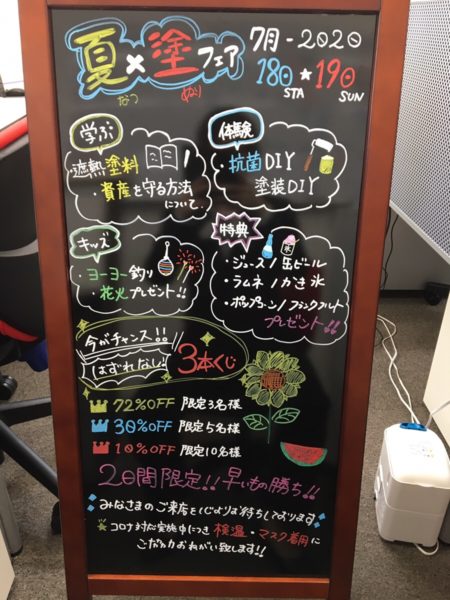 夏×塗フェア
なつ ぬり
7月-2020
18日★19日
STA SUN
学ぶ
・遮熱塗料
・資産を守る方法
について.
体験
・抗菌DIY
塗装DIY
キッズ
・ヨーヨー釣り
・花火プレゼント!!
特典
氷
・ジュース/缶ビール
・ラムネ/かき氷
・ポップコーン/フランクフルト
プレゼント!!
今がチャンス!!
はずれなし!
3本くじ
72%OFF 限定3名様
30%OFF 限定5名様
10%OFF 限定10名様
2日間限定!!早いもの勝ち!!
みなさまのご来店を心よりお待ちしております
★コロナ対応実施中につき 検温・マスク着用に
ご協力おねがい致します!!